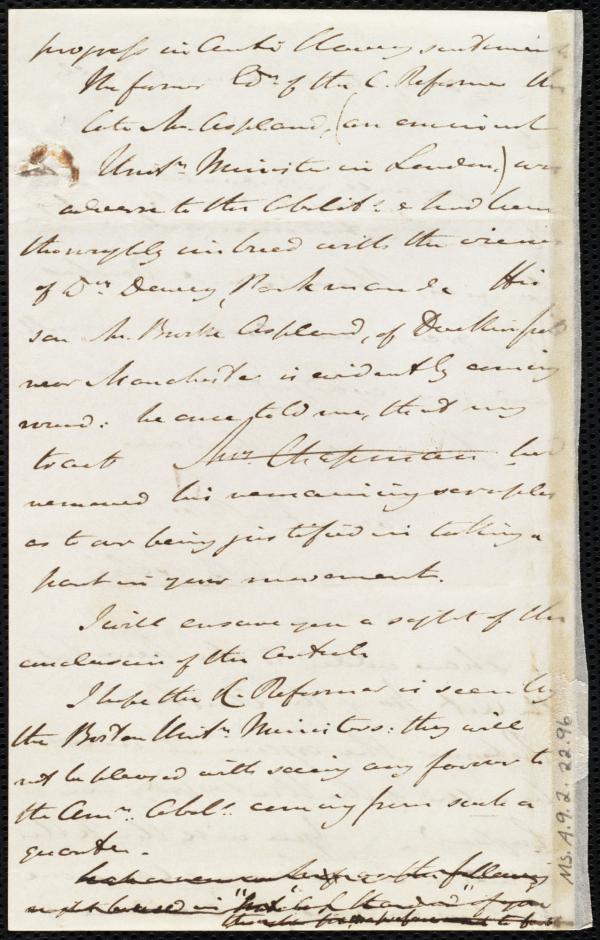 progress in Anti Slavery sentiment
The former Edr. of the C. Reformer the
late Mr. Aspland, (an eminent
Unitn. Minister in London,) was
adverse to the Abolits. & had been
thoroughly imbued with the views
of Drs Dewey, Parkman &c His
son Mr. Brook Aspland, of Dukinfield
near Manchester is evidently coming
round: he once told me, that my
tract Mrs. Chapman had
removed his remaining scruples
as to our being justified in taking a
part in your movement.
I will ensure you a sight of the
conclusion of the Article
I hope the C. Reformer is seen by
the Boston Unitn. Ministers: they will
not be pleased with seeing any favor to
the Amn. Abols. coming from such a
quarter.
of the following
might be used in "Standard" if you
Ms. A.9.2.22.96